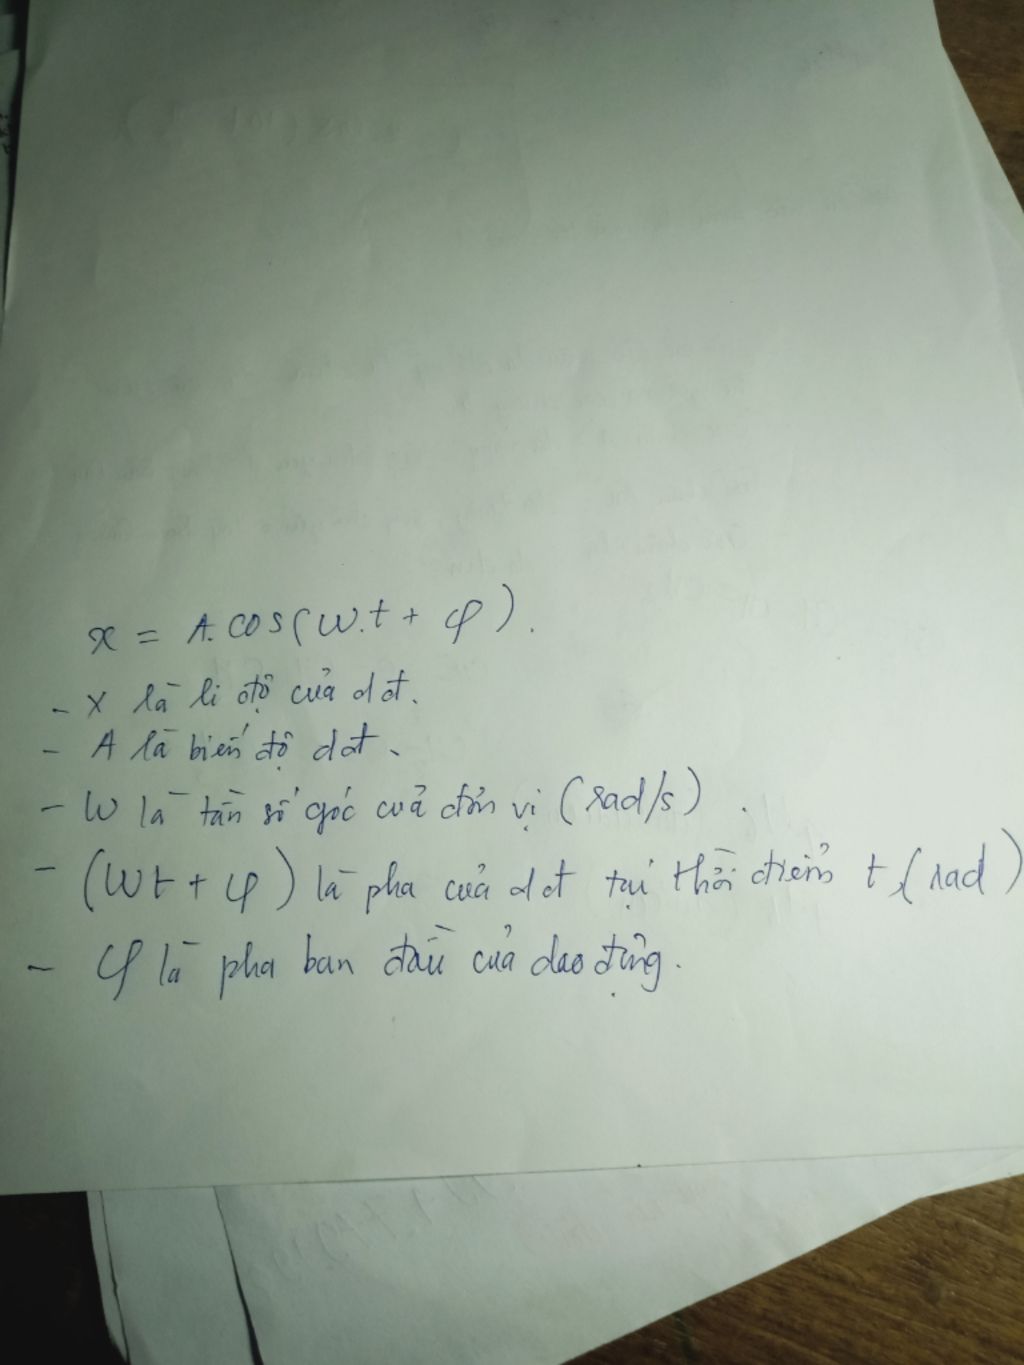 x = A.cos(ω.t + φ).
- x là li độ của dđ.
- A là biến độ dđ.
- ω là tần số góc của đơn vị (rad/s).
- (ωt + φ) là pha của dđ tại thời điểm t (rad)
- φ là pha ban đầu của dao động.